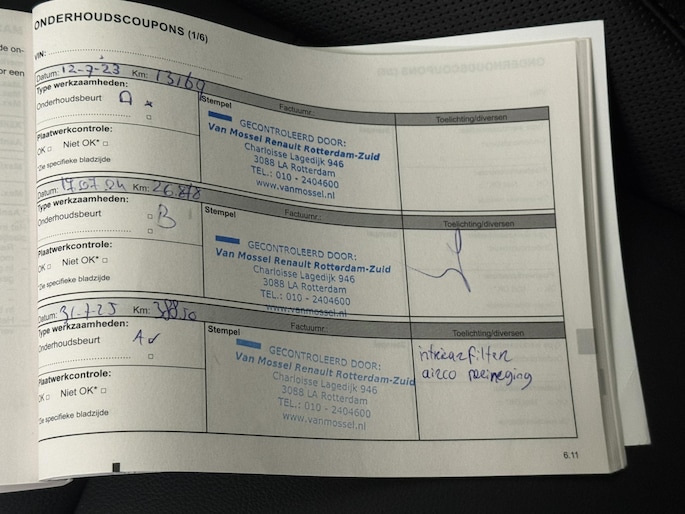 ONDERHOUDSCOUPONS (1/6)
VIN:
Datum: 12-7-23 Km: 13169
Type werkzaamheden:
Onderhoudsbeurt A
Plaatwerkcontrole:
OK □ Niet OK* □
*Zie specifieke bladzijde
Stempel Factuurnr.:
GECONTROLEERD DOOR:
Van Mossel Renault Rotterdam-Zuid
Charloisse Lagedijk 946
3088 LA Rotterdam
TEL.: 010 - 2404600
www.vanmossel.nl
Toelichting/diversen
Datum: 17.07.24 Km:
Type werkzaamheden:
Onderhoudsbeurt □ B
Plaatwerkcontrole:
OK □ Niet OK* □
*Zie specifieke bladzijde
Stempel Factuurnr.:
GECONTROLEERD DOOR:
Van Mossel Renault Rotterdam-Zuid
Charloisse Lagedijk 946
3088 LA Rotterdam
TEL.: 010 - 2404600
www.vanmossel.nl
Toelichting/diversen
Datum: 31-7-25 Km:
Type werkzaamheden:
Onderhoudsbeurt A
Plaatwerkcontrole:
OK □ Niet OK* □
*Zie specifieke bladzijde
Stempel Factuurnr.:
GECONTROLEERD DOOR:
Van Mossel Renault Rotterdam-Zuid
Charloisse Lagedijk 946
3088 LA Rotterdam
TEL.: 010 - 2404600
www.vanmossel.nl
Toelichting/diversen
airco reiniging
6.11